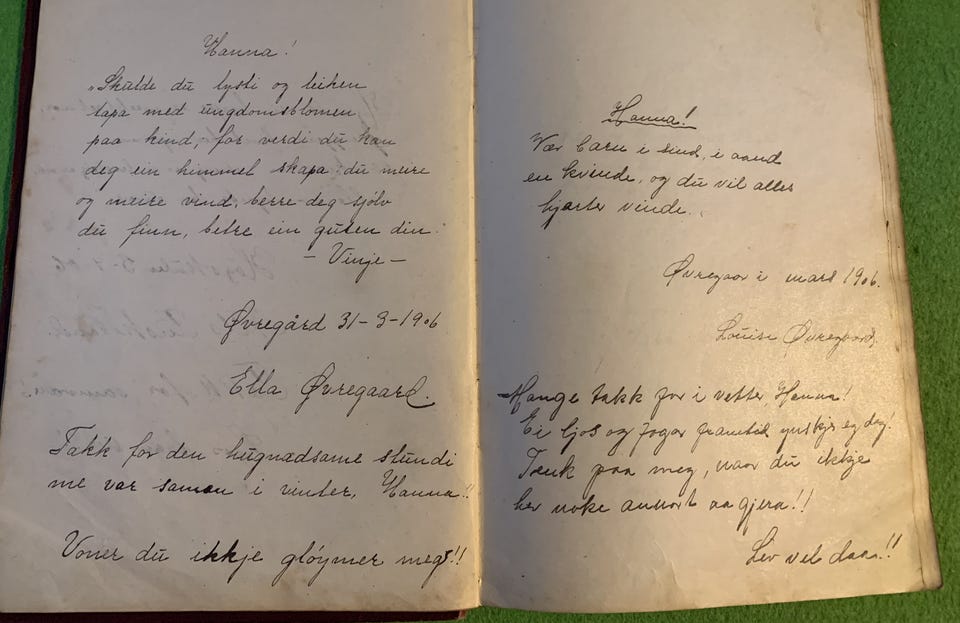 Hanna!
"Skulde du lysti og leiken
tapa med ungdomsblomen
paa kind, for verdi du kan
deg ein himmel skapa du meire
og meire vind, berre deg sjølv
du finn, betre ein guten din.
- Vinje -
Øvregård 31-3-1906
Ella Øvregaard.
Takk for den hugnadsame stundi
me var saman i vinter, Hanna!!
Voner du ikkje gløymer meg!!
Hanna!
Vær barn i sind, i aand
en kvinde, og du vil alles
hjærter vinde.
Øvregaar i mars 1906.
Louise Øvregaard.
Mange takk for i vetter, Hanna!
Ei ljos og fager framtid ynskje eg deg!
Tenk paa meg, naar du ikkje
hev noke annort aa gjera!!
Lev vel daa!!